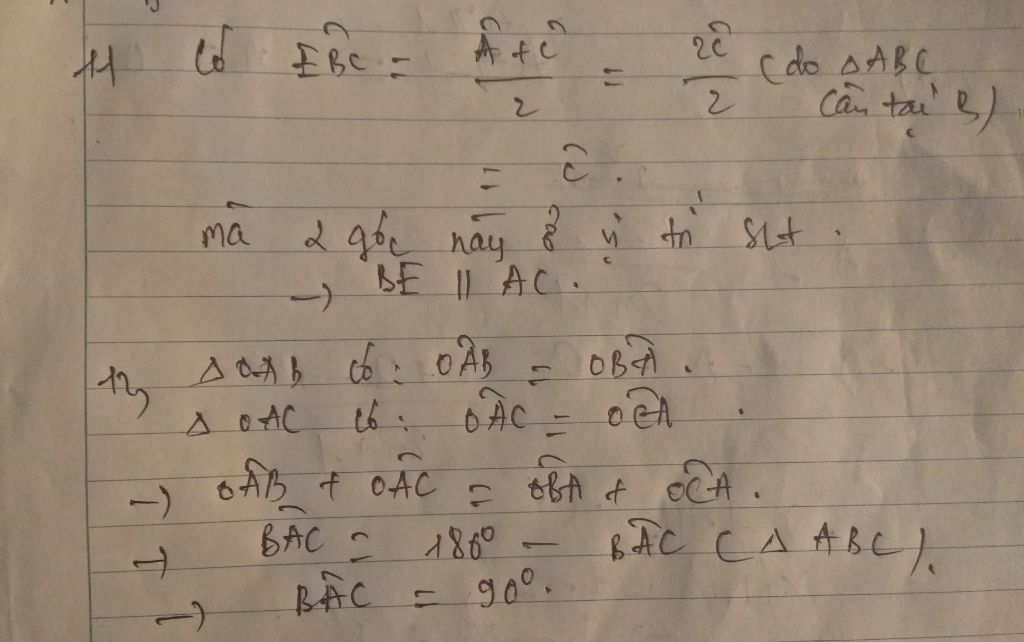 11 Có EB̂C = Â + Ĉ / 2 = 2Ĉ / 2 ( do △ABC
cân tại B)
= Ĉ .
mà 2 góc này ở vị trí slt .
→ BE // AC .
12, △OAB có : OÂB = OB̂A .
△ OAC có : OÂC = OĈA .
→ OÂB + OÂC = OB̂A + OĈA .
→ BÂC = 180° - BÂC ( △ ABC ).
→ BÂC = 90°.